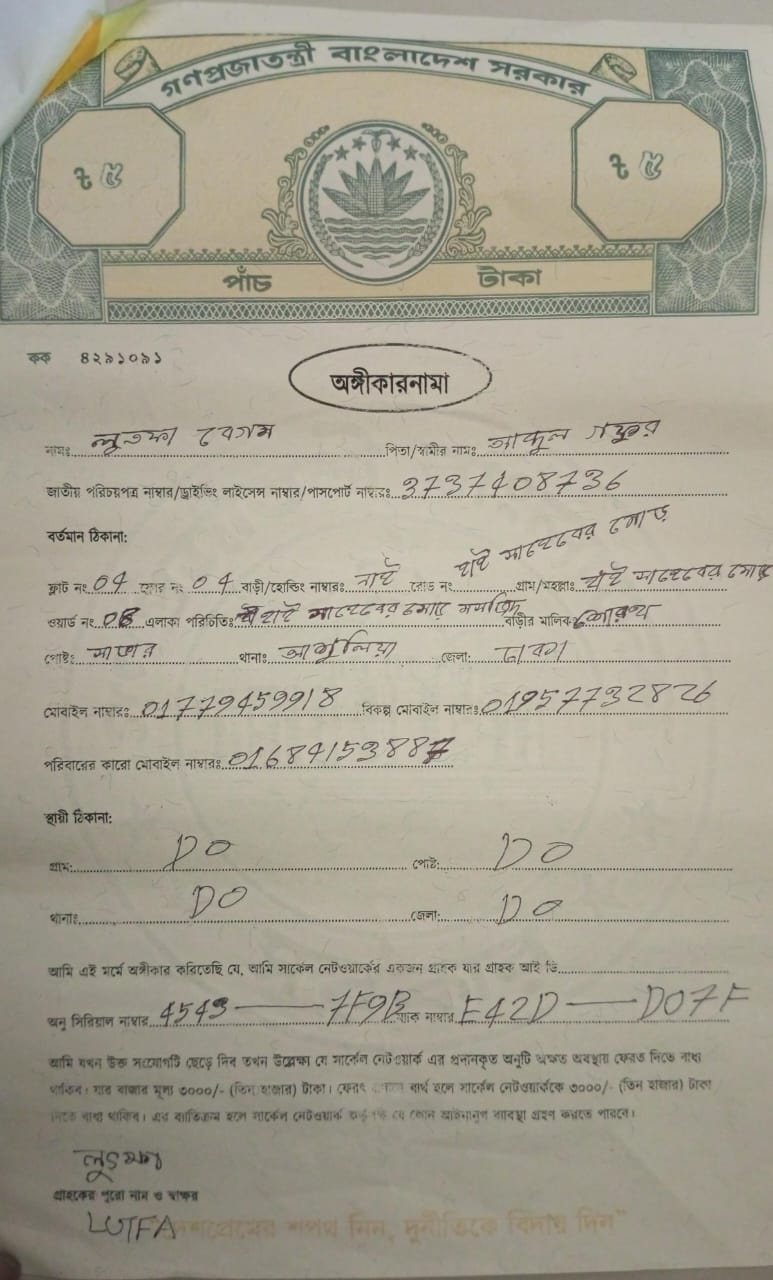 গণপ্রজাতন্ত্রী বাংলাদেশ সরকার
৳ ৫ ৳ ৫
পাঁচ টাকা
কক ৪২৯১০৯১
অঙ্গীকারনামা
নামঃ লুতফা বেগম পিতা/স্বামীর নামঃ আব্দুল গফুর
জাতীয় পরিচয়পত্র নাম্বার/ড্রাইভিং লাইসেন্স নাম্বার/পাসপোর্ট নাম্বারঃ 3737408736
বর্তমান ঠিকানা:
ফ্লাট নং 04 ফ্লোর নং 04 বাড়ী/হোল্ডিং নাম্বারঃ নাই রোড নং হাই সাহেবের মোড় গ্রাম/মহল্লাঃ হাই সাহেবের মোড়
ওয়ার্ড নং 08 এলাকা পরিচিতিঃ হাই সাহেবের মোড় মসজিদ বাড়ীর মালিক
পোষ্টঃ সাভার থানাঃ আশুলিয়া জেলা: ঢাকা
মোবাইল নাম্বারঃ 01779459918 বিকল্প মোবাইল নাম্বারঃ 01957732826
পরিবারের কারো মোবাইল নাম্বারঃ 01684153887
স্থায়ী ঠিকানা:
গ্রাম: DO পোষ্ট: DO
থানাঃ DO জেলা: DO
আমি এই মর্মে অঙ্গীকার করিতেছি যে, আমি সার্কেল নেটওয়ার্কের একজন গ্রাহক যার গ্রাহক আই ডি
অনু সিরিয়াল নাম্বার 4543 — 7F9B ম্যাক নাম্বার E42D — D07F
আমি যখন উক্ত সংযোগটি ছেড়ে দিব তখন উল্লেক্ষ্য যে সার্কেল নেটওয়ার্ক এর প্রদানকৃত অনুটি অক্ষত অবস্থায় ফেরত দিতে বাধ্য
থাকিব। যার বাজার মূল্য ৩০০০/- (তিন হাজার) টাকা। ফেরৎ ব্যর্থ হলে সার্কেল নেটওয়ার্ককে ৩০০০/- (তিন হাজার) টাকা
দিতে বাধ্য থাকিব। এর ব্যতিক্রম হলে সার্কেল নেটওয়ার্ক কর্তৃপক্ষ যে কোন আইনানুগ ব্যবস্থা গ্রহণ করতে পারবে।
লুতফা
গ্রাহকের পুরো নাম ও স্বাক্ষর
LUTFA
দেশপ্রেমের শপথ নিন, দুর্নীতিকে বিদায় দিন"